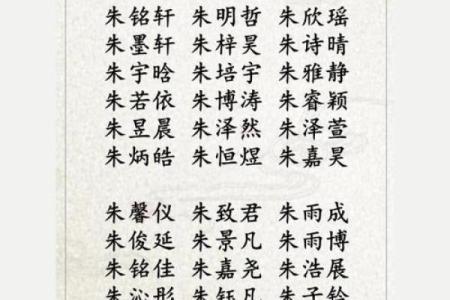 朱铭轩 朱明哲 朱欣瑶
朱墨轩 朱梓昊 朱诗晴
朱宇晗 朱培宇 朱雅静
朱若依 朱博涛 朱睿颖
朱昱晨 朱泽然 朱泽萱
朱炳皓 朱恒煜 朱嘉昊
朱馨仪 朱致君 朱雨成
朱俊延 朱景凡 朱雨博
朱铭佳 朱嘉尧 朱浩展
朱沁彤 朱钰凡 朱子铃